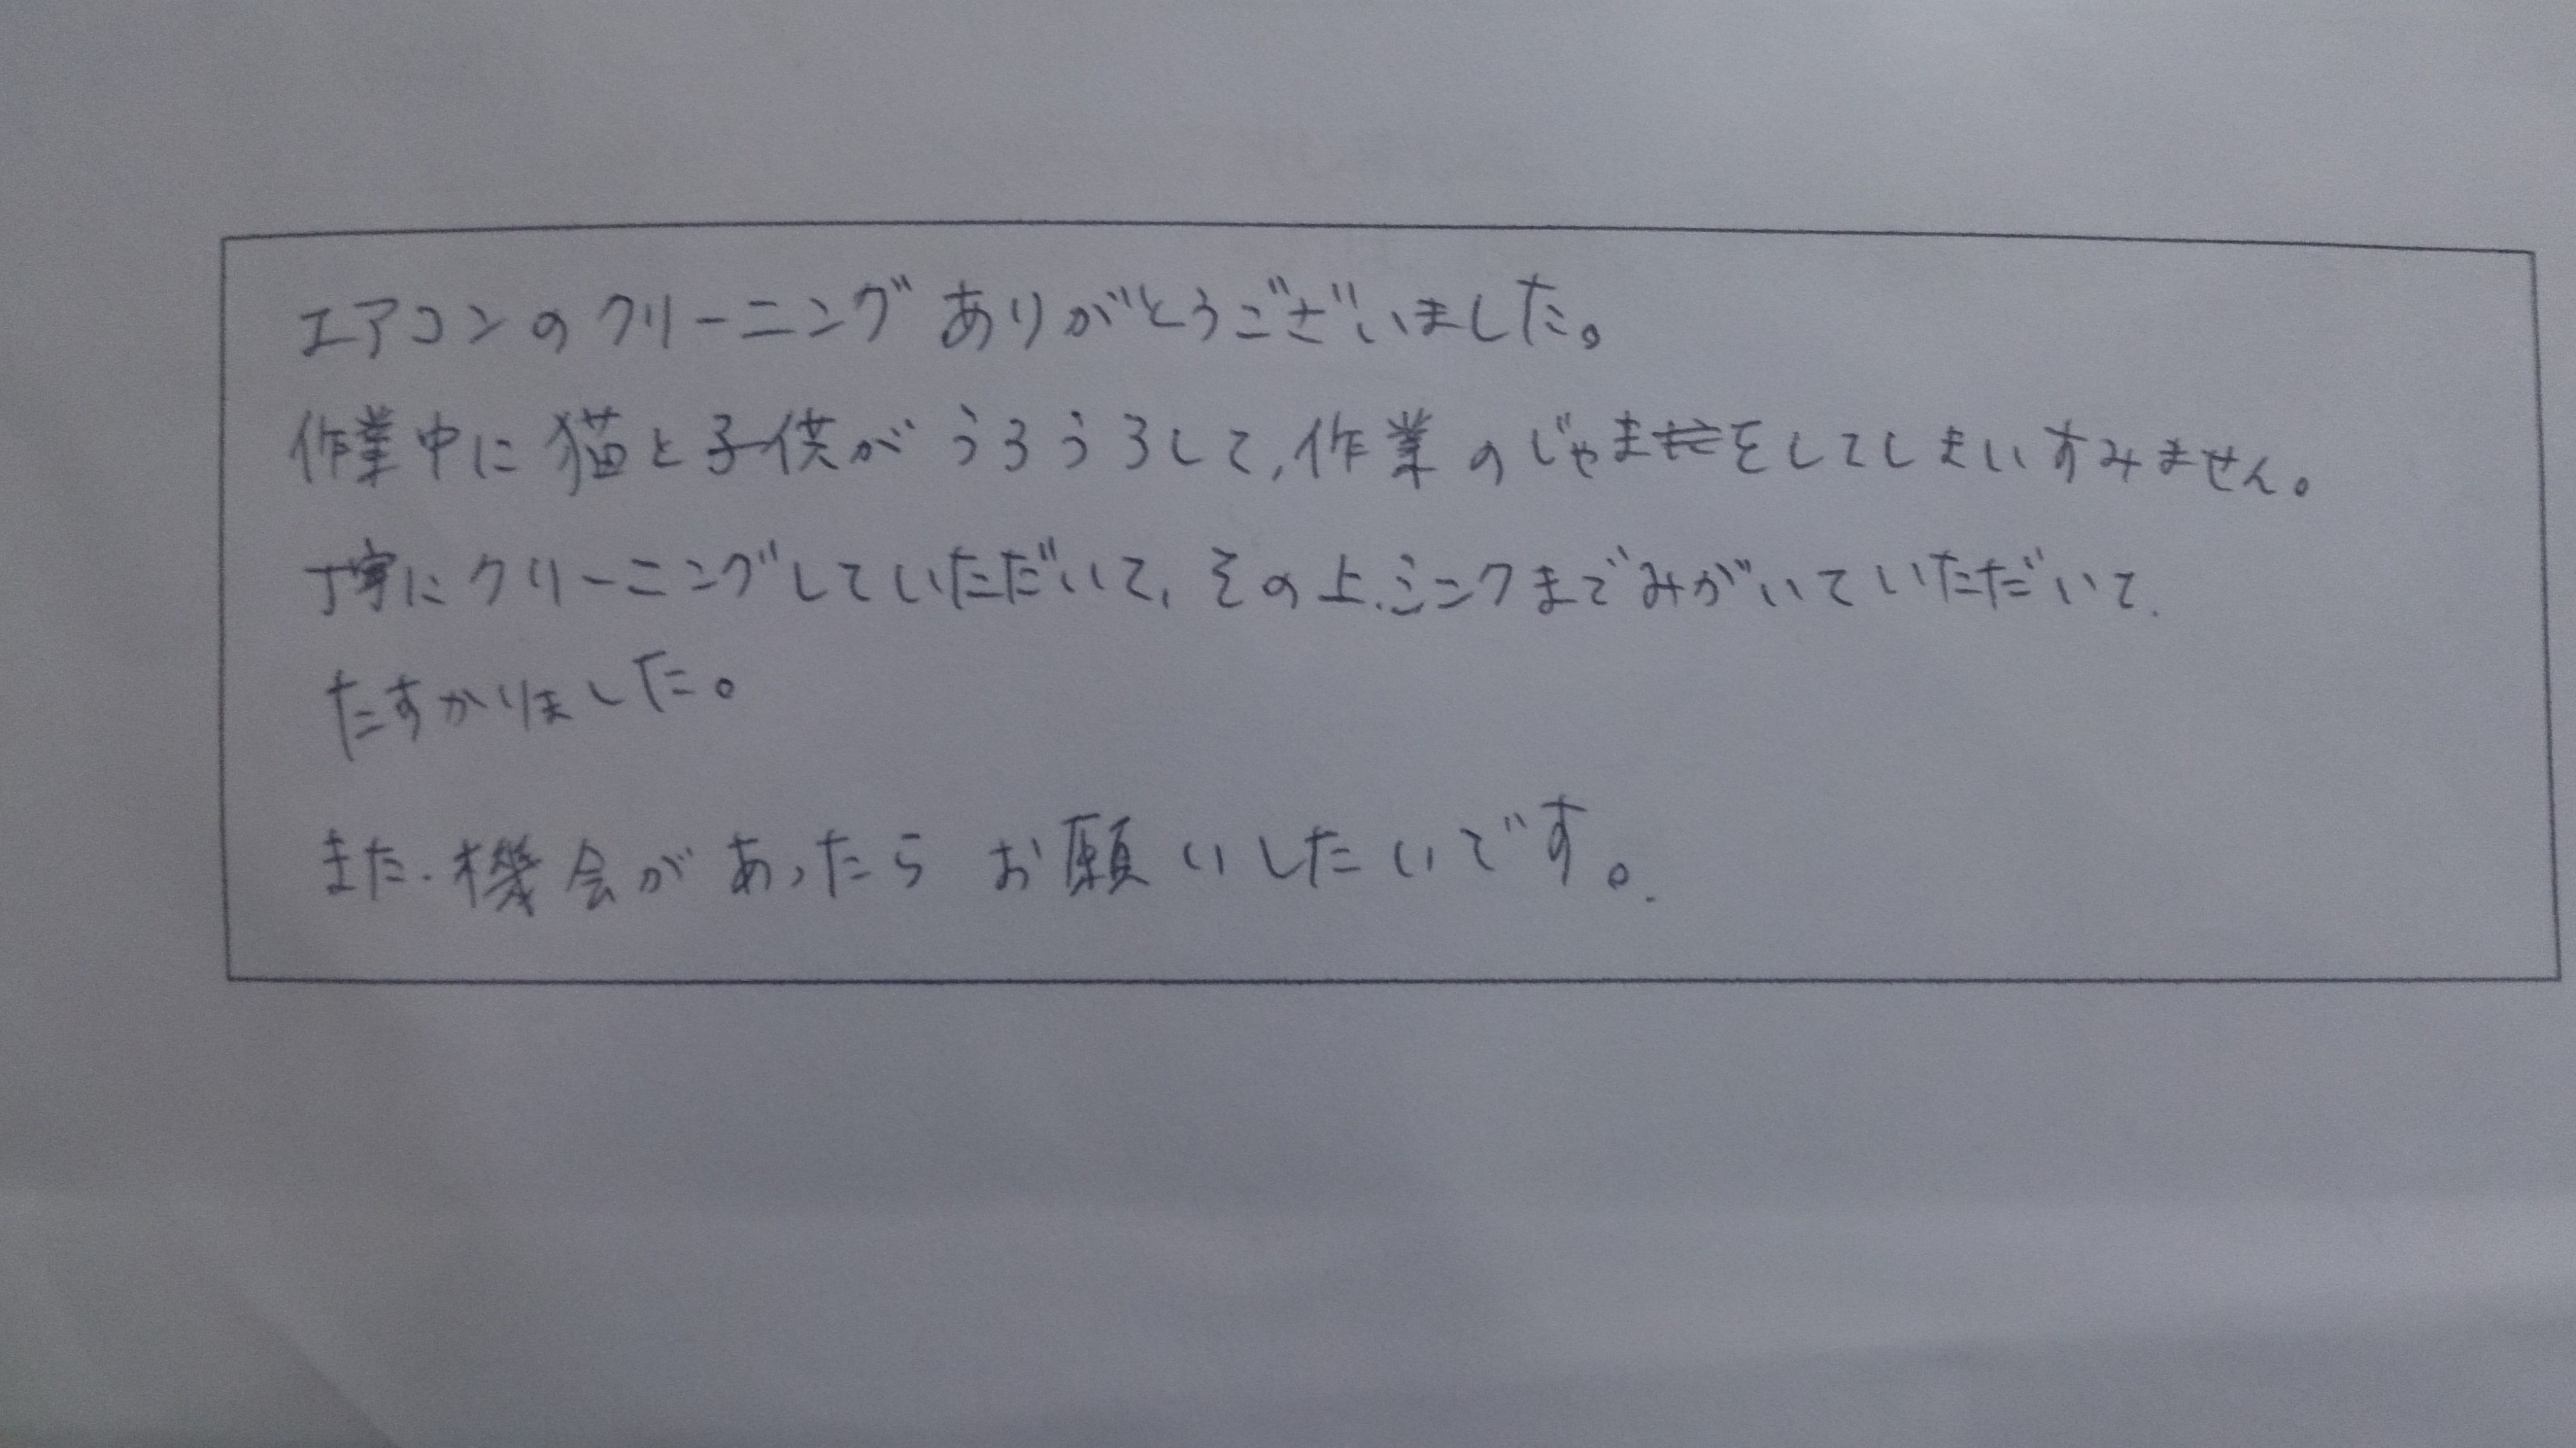 エアコンのクリーニングありがとうございました。
作業中に猫と子供がうろうろして、作業のじゃまをしてしまいすみません。
丁寧にクリーニングしていただいて、その上、シンクまでみがいていただいて、
たすかりました。
また、機会があったらお願いしたいです。